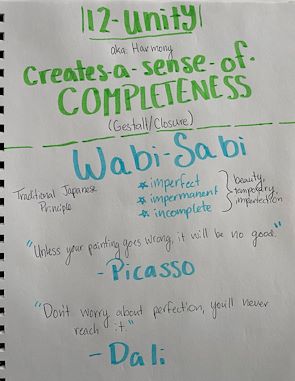 12-Unity
aka Harmony
Creates-a-sense-of-
COMPLETENESS
(Gestalt/Closure)
Wabi-Sabi
Traditional Japanese
Principle
☆ imperfect
☆ impermanent
☆ incomplete
beauty,
temporary,
imperfection
"Unless your painting goes wrong, it will be no good."
-Picasso
"Don't worry about perfection, you'll never
reach it."
-Dali